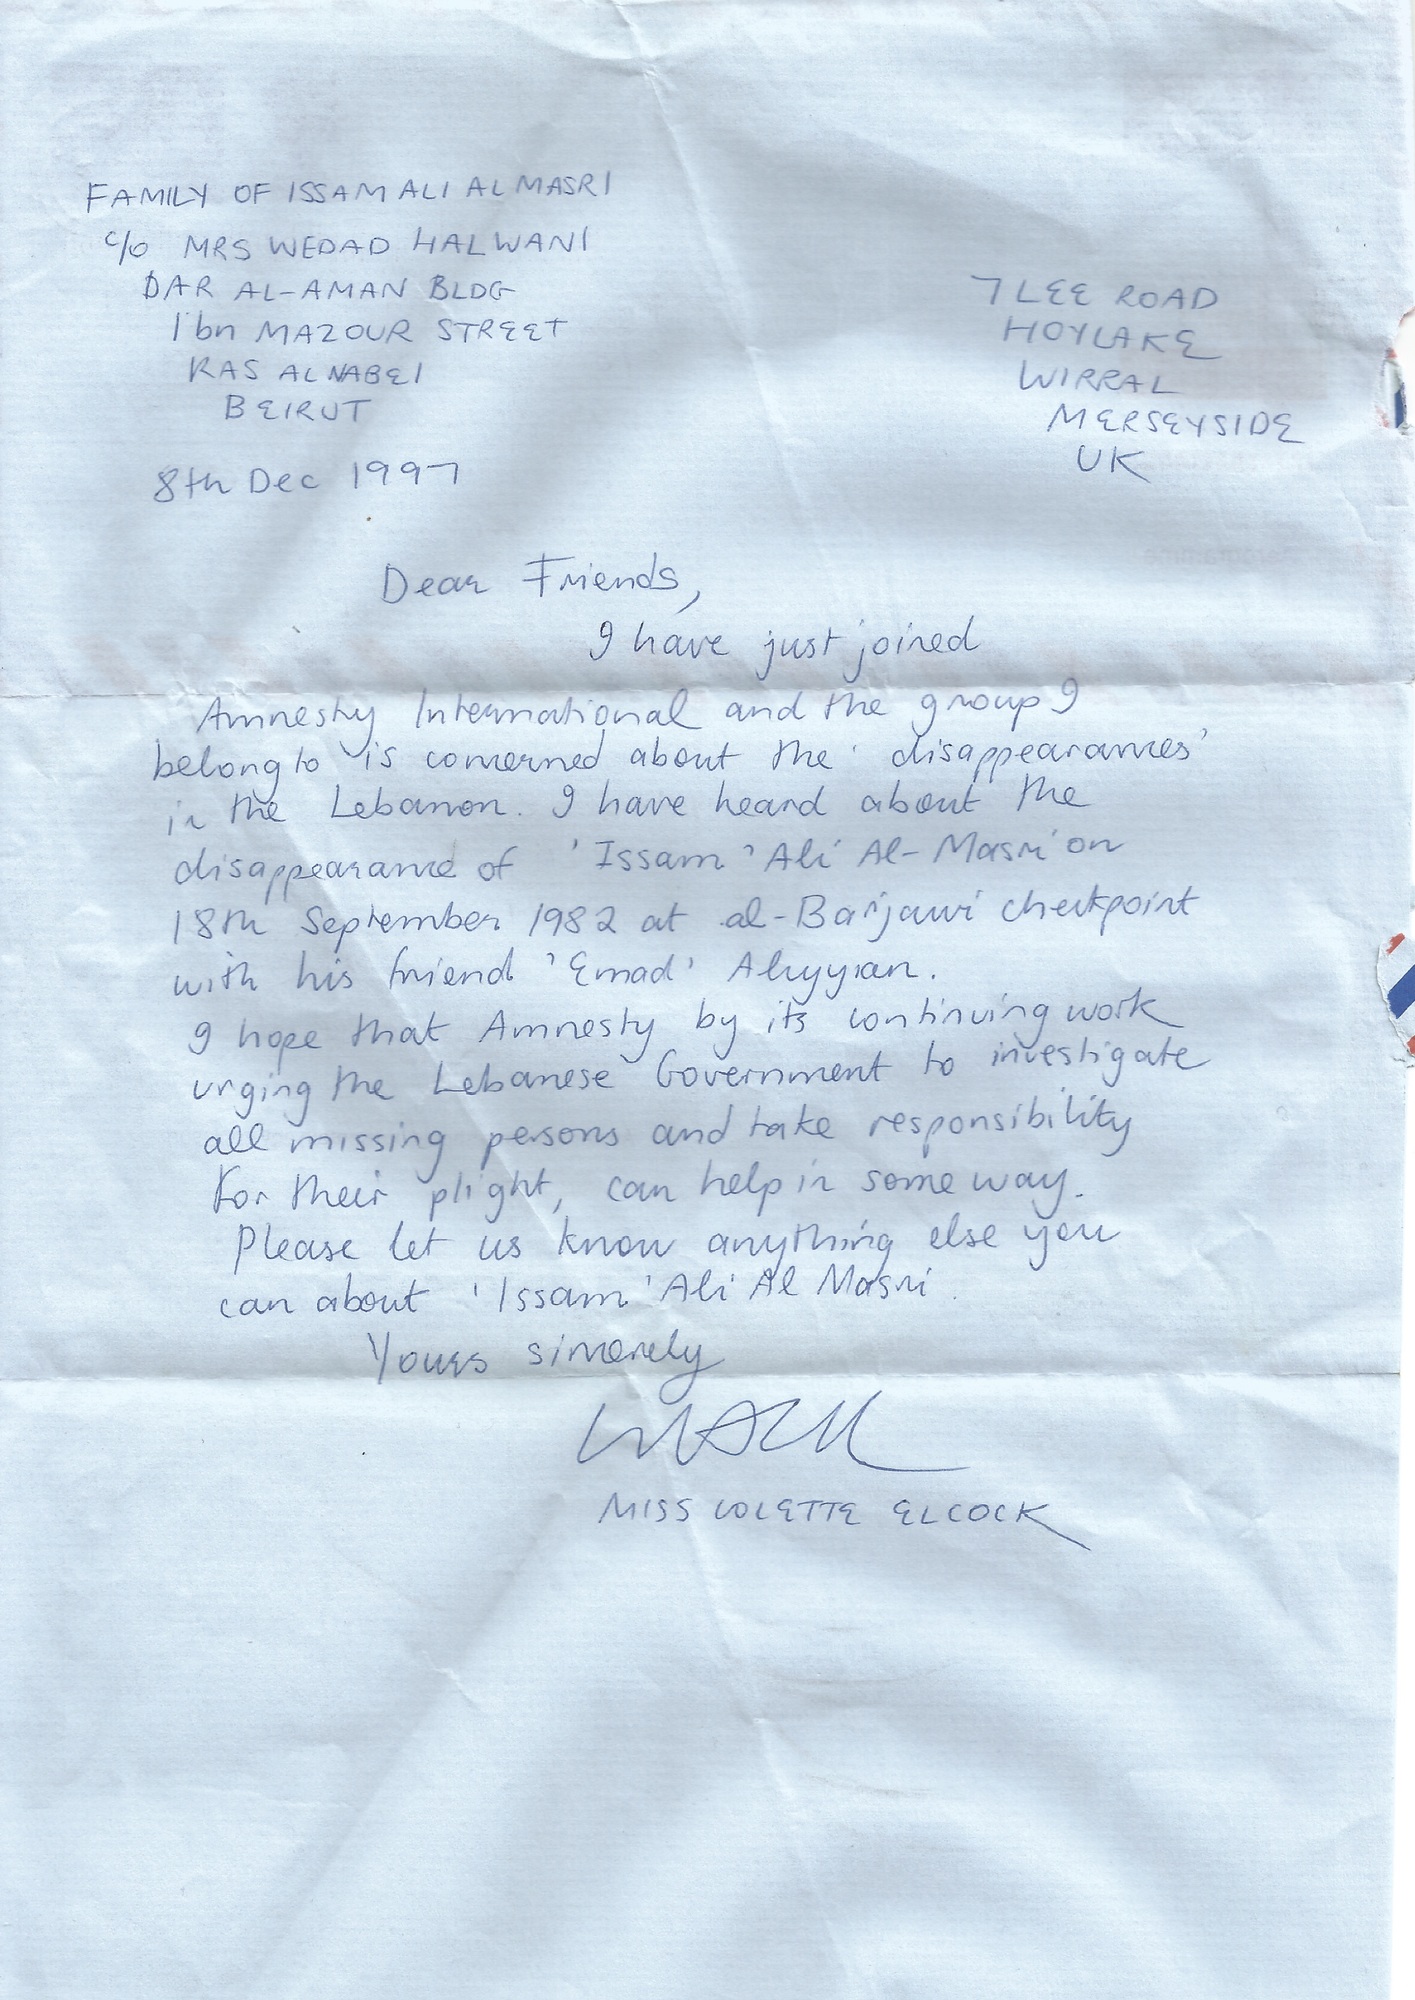 FAMILY OF ISSAM ALI AL MASRI
c/o MRS WEDAD HALWANI
DAR AL-AMAN BLDG
Ibn MAZOUR STREET
RAS ALNABEI
BEIRUT
7 LEE ROAD
HOYLAKE
WIRRAL
MERSEYSIDE
UK
8th Dec 1997
Dear Friends,
I have just joined
Amnesty International and the group I
belong to is concerned about the 'disappearances'
in the Lebanon. I have heard about the
disappearance of 'Issam' Ali Al-Masri on
18th September 1982 at al-Barjawi checkpoint
with his friend 'Emad'
I hope that Amnesty by its continuing work
urging the Lebanese Government to investigate
all missing persons and take responsibility
for their plight, can help in some way.
Please let us know anything else you
can about 'Issam' Ali Al Masri.
Yours sincerely
MISS COLETTE ELCOCK